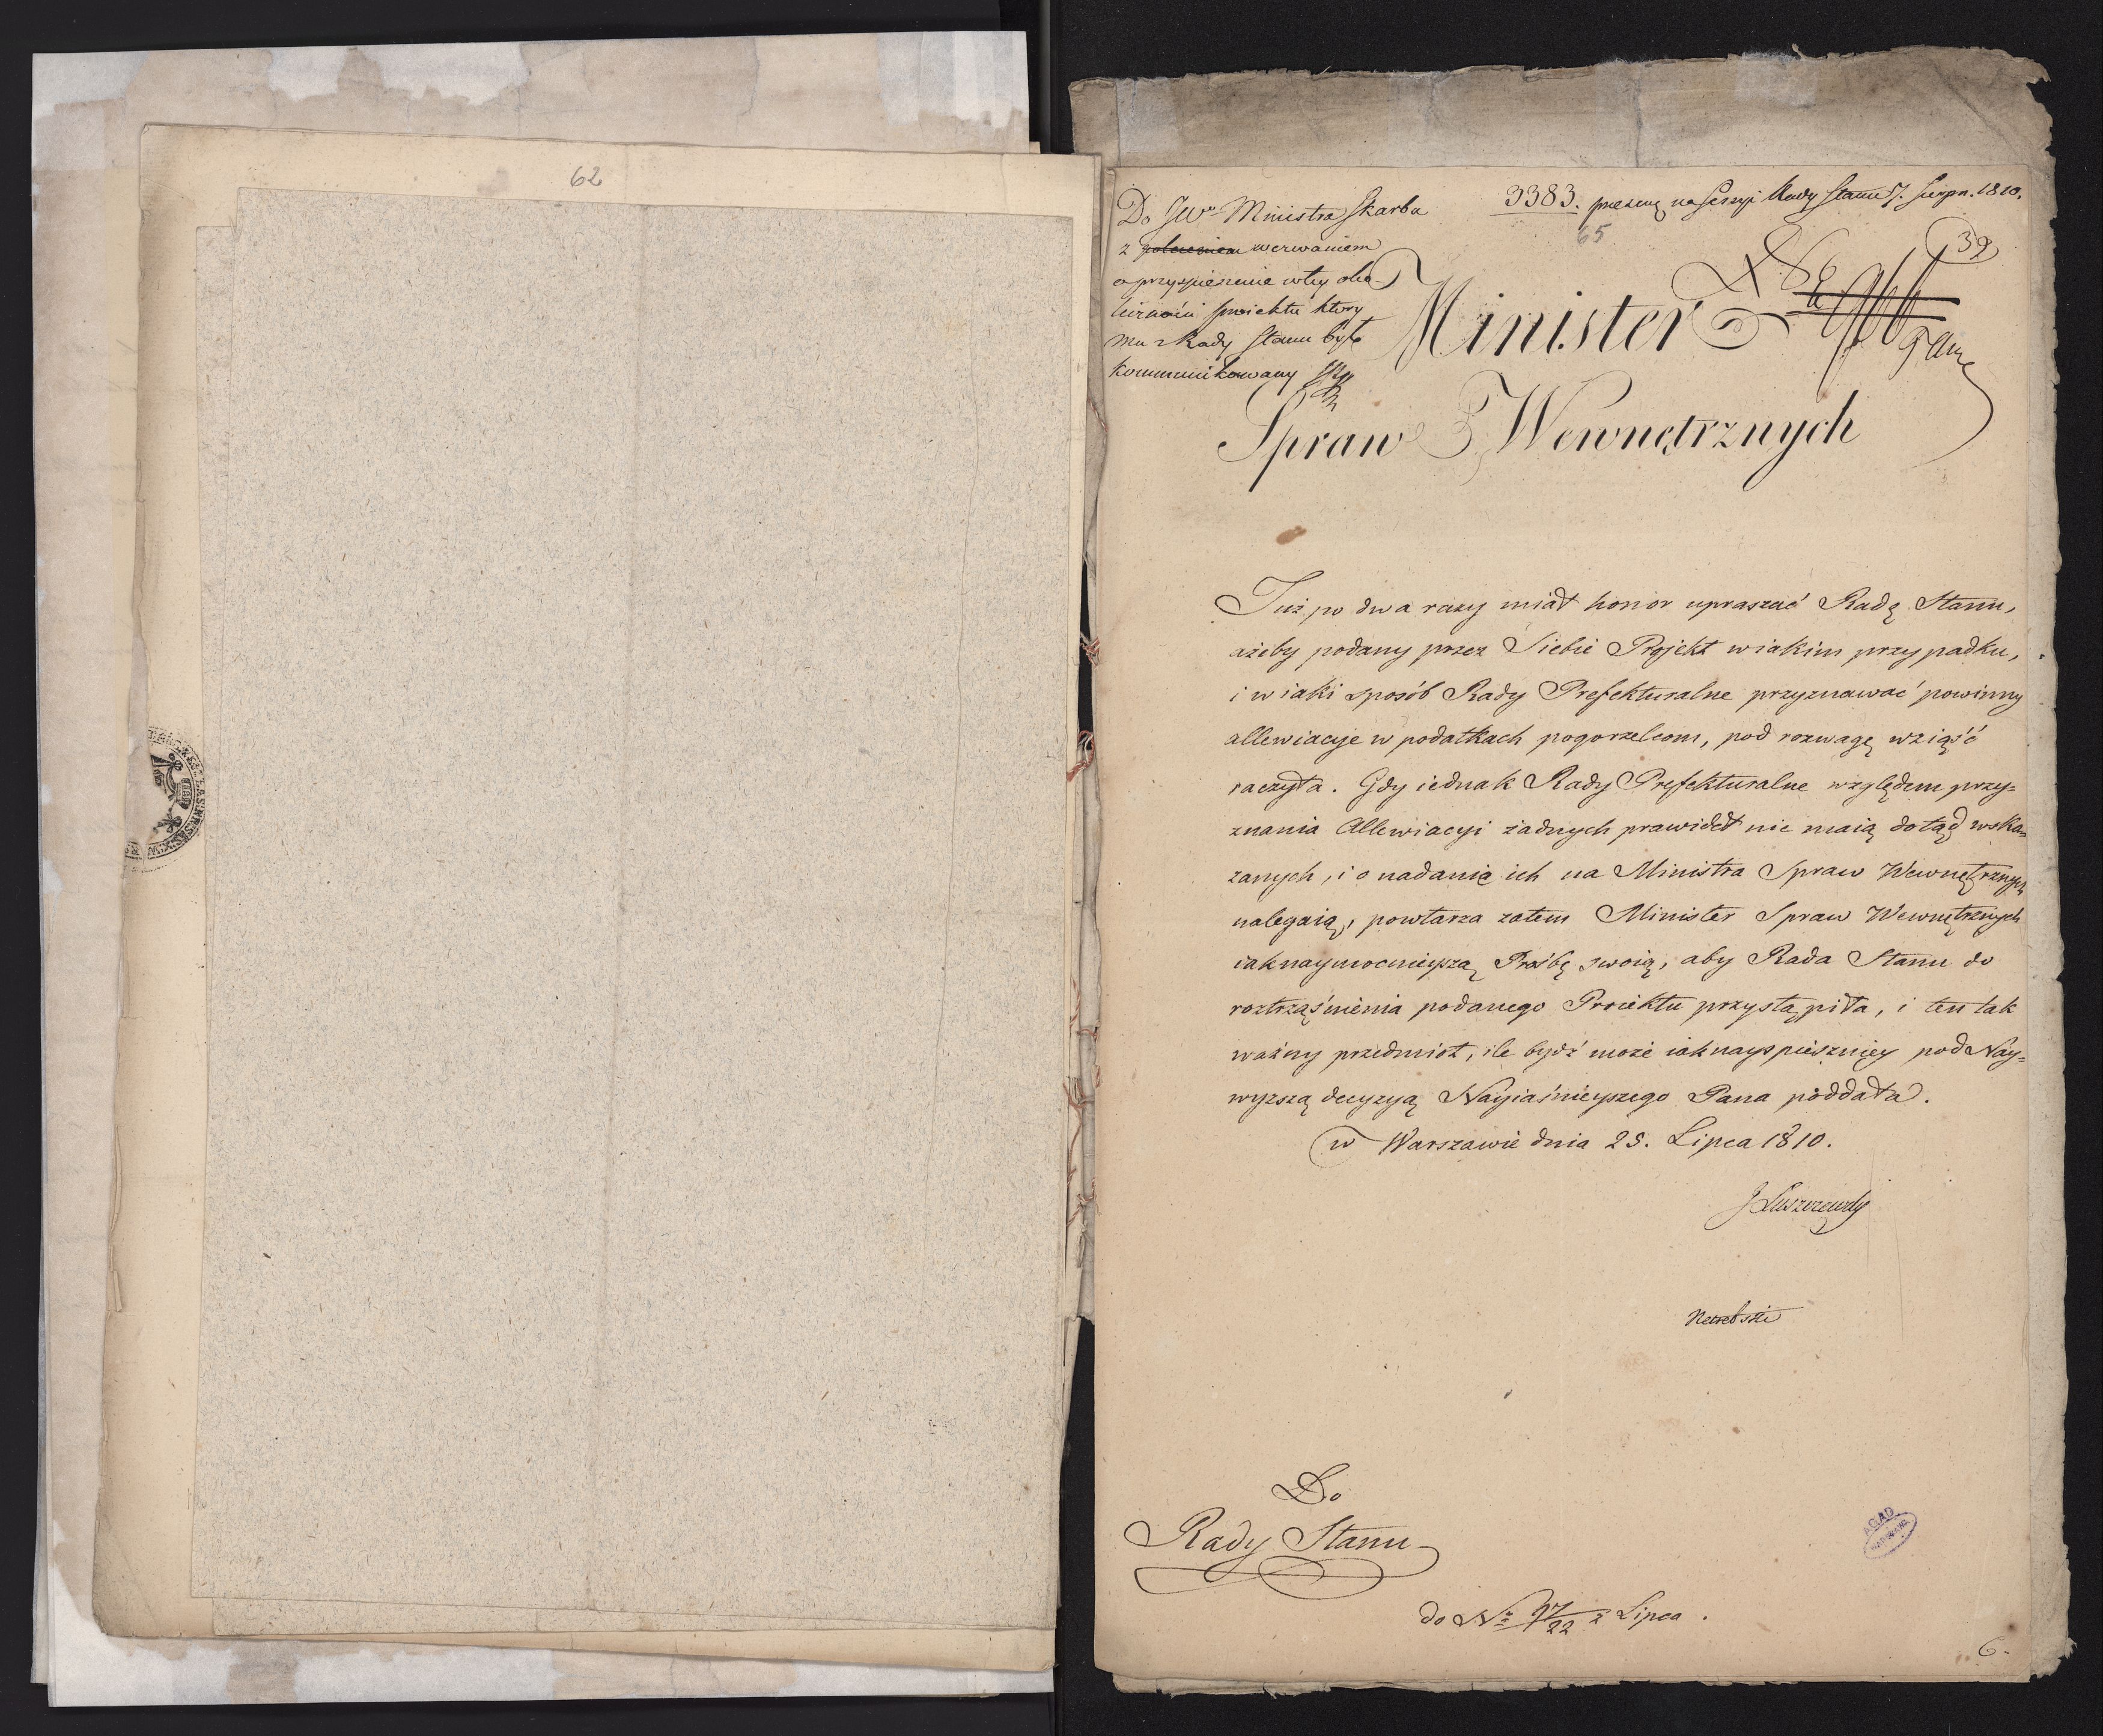 62
3383. na Sessyi Rady Stanu 7. Sierpn. 1810.
65
39
Do JW Ministra Skarbu
z poleceniem wezwaniem
o przyspieszenie w tey oko-
liczności proiektu ktory
mu z Rady Stanu był
kommunikowany
Minister
Spraw Wewnętrznych
Już po dwa razy miał honor upraszać Radę Stanu,
ażeby podany przez Siebie Projekt w iakim przypadku,
i w iaki sposób Rady Prefekturalne przyznawać powinny
allewiacyje w podatkach pogorzelcom, pod rozwagę wziąść
raczyła. Gdy iednak Rady Prefekturalne względem przy=
znania Allewiacyi żadnych prawideł nie maią dotąd wska=
zanych, i o nadanie ich na Ministra Spraw Wewnętrznych
nalegaią, powtarza zatem Minister Spraw Wewnętrznych
iaknaymocnieyszą Prośbę swoią, aby Rada Stanu do
roztrząśnienia podanego Proiektu przystąpiła, i ten tak
ważny przedmiot, ile bydź może iaknayspieszniey pod Nay=
wyższą decyzyą Nayiaśnieyszego Pana poddała.
w Warszawie dnia 25. Lipca 1810.
J Łuszczewski
Netrebski
Do
Rady Stanu
AGAD
WARSZAWA
do No 97/22 z Lipca.
6.